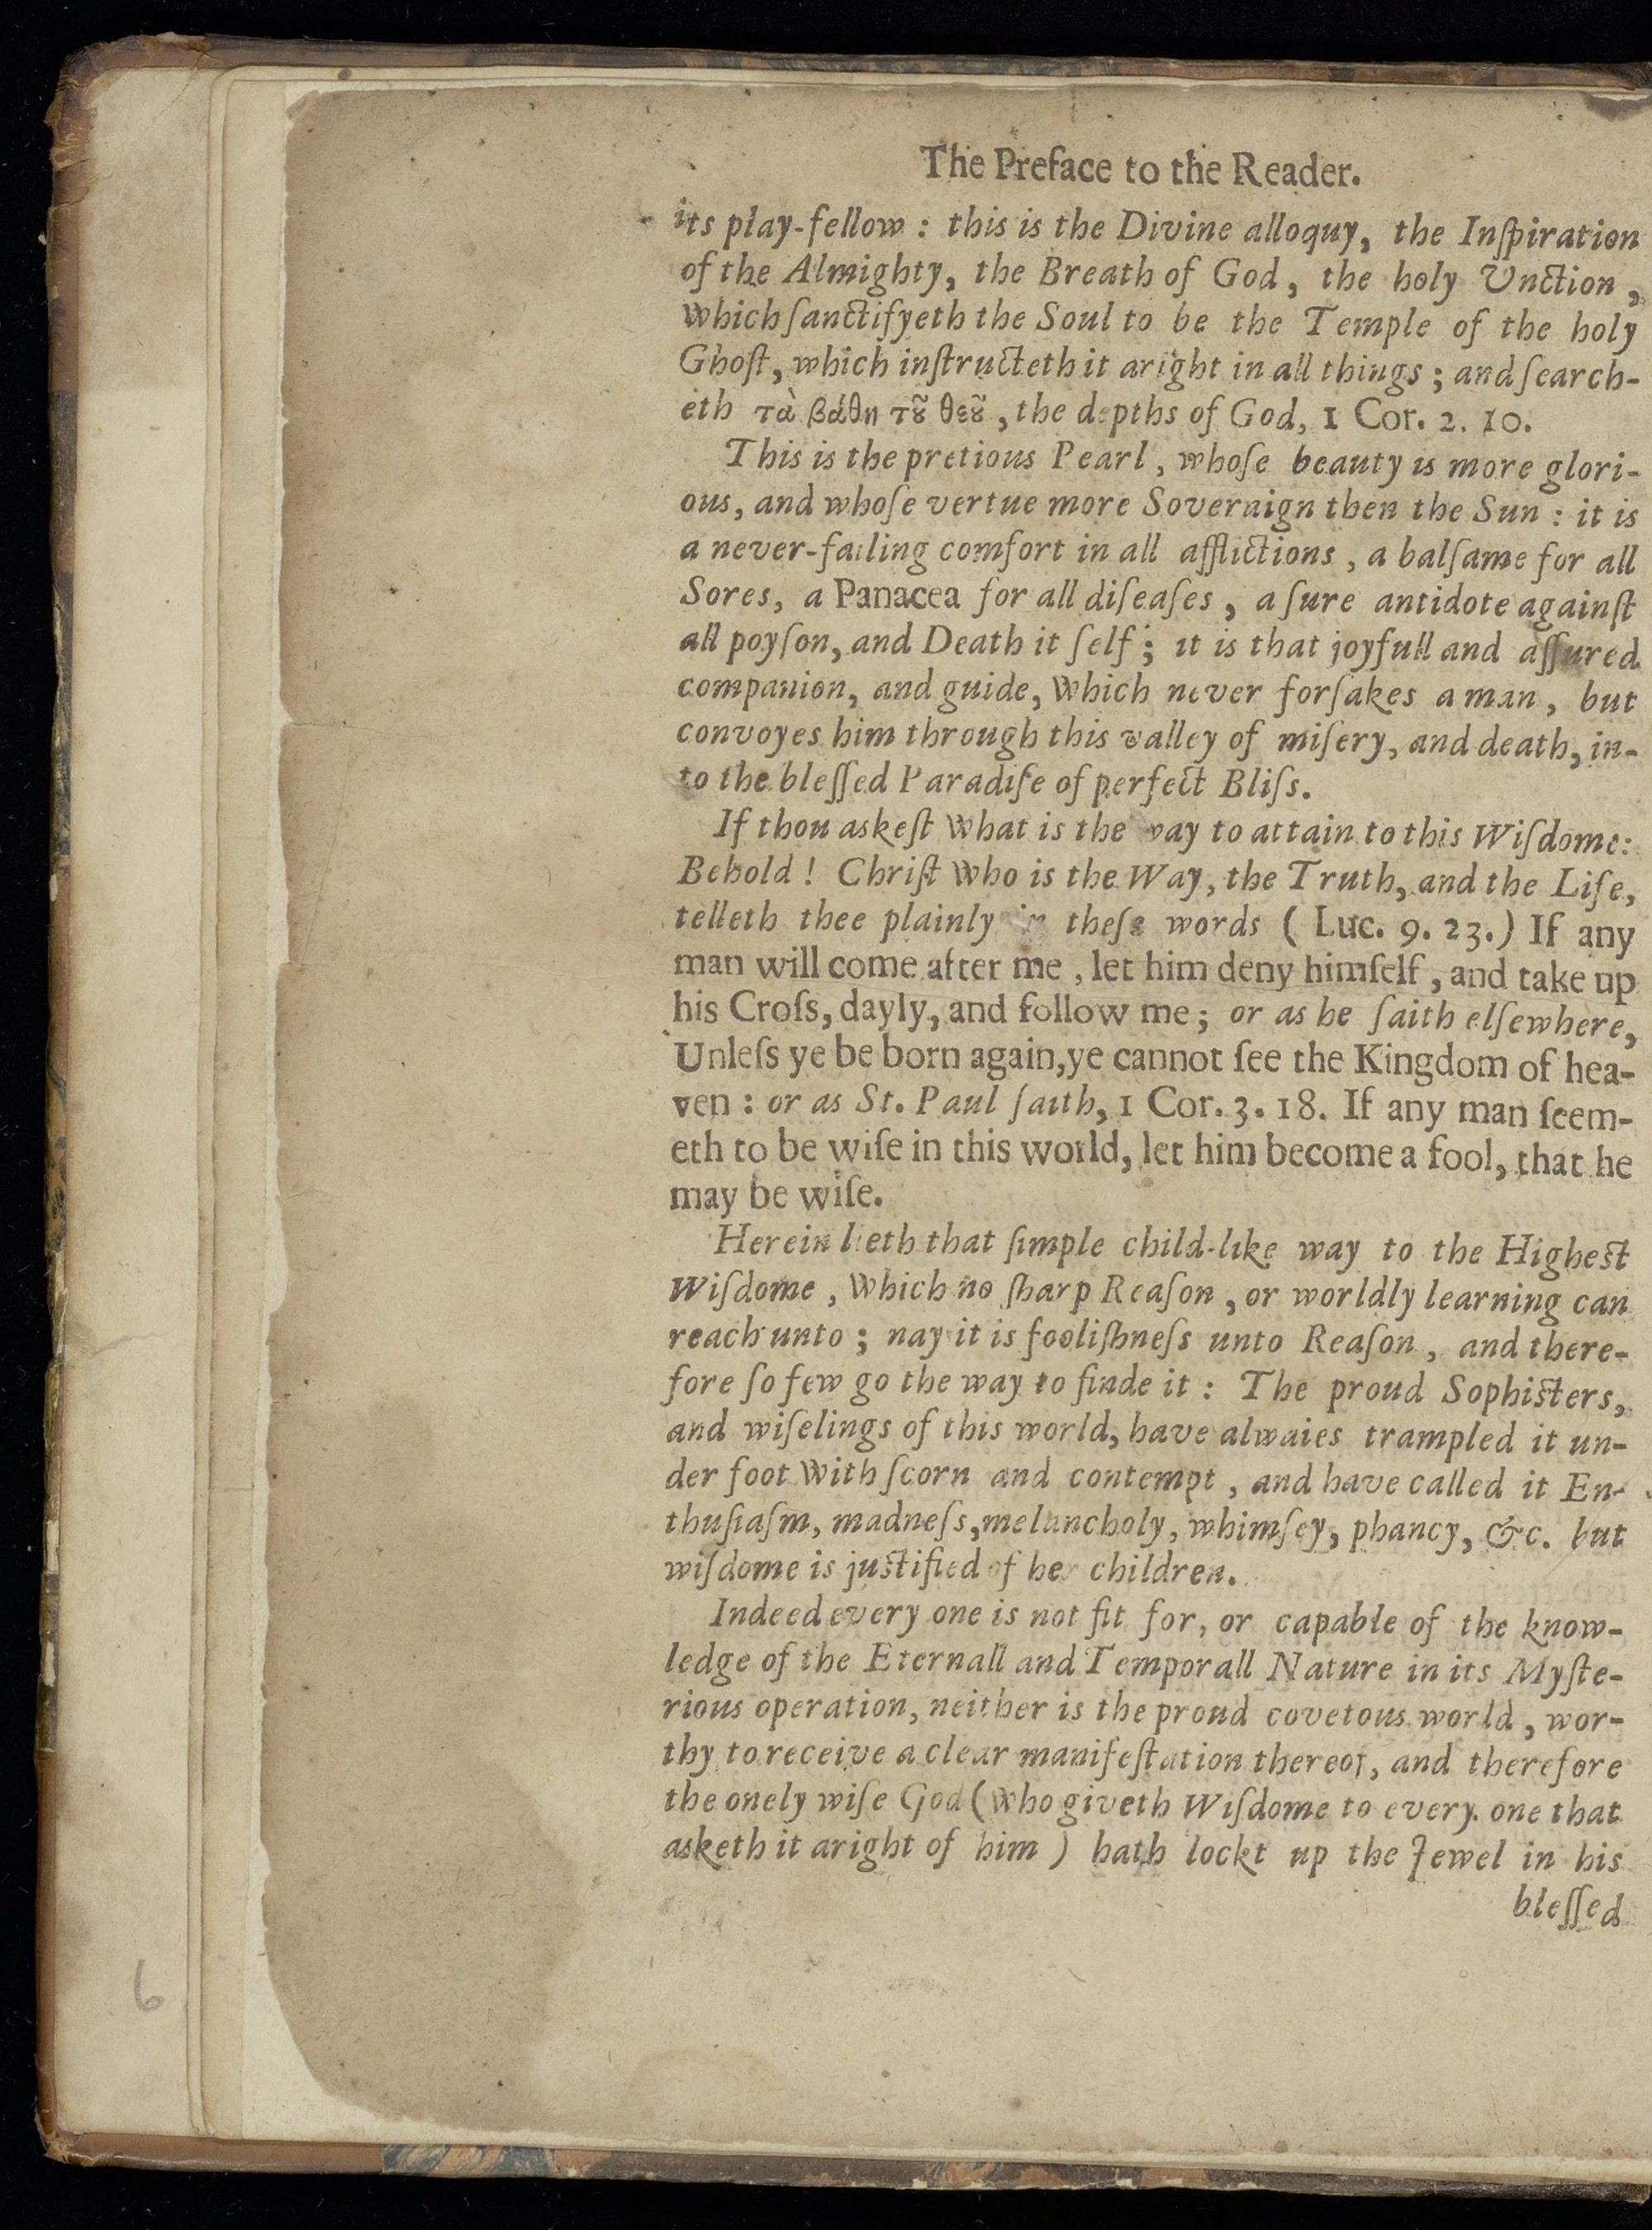 The Preface to the Reader.
its play-fellow : this is the Divine alloquy, the Inſpiration
of the Almighty, the Breath of God, the holy Unction,
which ſanctifyeth the Soul to be the Temple of the holy
Ghoſt, which inſtructeth it aright in all things; and ſearch-
eth τὰ βάθη τȣ͂ θεȣ͂, the depths of God, 1 Cor. 2. 10.
This is the pretious Pearl, whoſe beauty is more glori-
ous, and whoſe vertue more Soveraign then the Sun : it is
a never-failing comfort in all afflictions, a balſame for all
Sores, a Panacea for all diſeaſes, a ſure antidote againſt
all poyſon, and Death it ſelf; it is that joyfull and aſſured
companion, and guide, which never forſakes a man, but
convoyes him through this valley of miſery, and death, in-
to the bleſſed Paradiſe of perfect Bliſs.
If thou askeſt what is the way to attain to this Wiſdome:
Behold! Chriſt who is the Way, the Truth, and the Life,
telleth thee plainly in theſe words ( Luc. 9. 23.) If any
man will come after me, let him deny himſelf, and take up
his Croſs, dayly, and follow me; or as he ſaith elſewhere,
Unleſs ye be born again, ye cannot ſee the Kingdom of hea-
ven : or as St. Paul ſaith, 1 Cor. 3. 18. If any man ſeem-
eth to be wiſe in this world, let him become a fool, that he
may be wiſe.
Herein lieth that ſimple child-like way to the Higheſt
Wiſdome, which no ſharp Reaſon, or worldly learning can
reach unto; nay it is fooliſhneſs unto Reaſon, and there-
fore ſo few go the way to finde it : The proud Sophiſters,
and wiſelings of this world, have alwaies trampled it un-
der foot with ſcorn and contempt, and have called it En-
thuſiaſm, madneſs, melancholy, whimſey, phancy, &c. but
wiſdome is juſtified of her children.
Indeed every one is not fit for, or capable of the know-
ledge of the Eternall and Temporall Nature in its Myſte-
rious operation, neither is the proud covetous world, wor-
thy to receive a clear manifeſtation thereof, and therefore
the onely wiſe God (who giveth Wiſdome to every one that
asketh it aright of him ) hath lockt up the Jewel in his
bleſſed
6